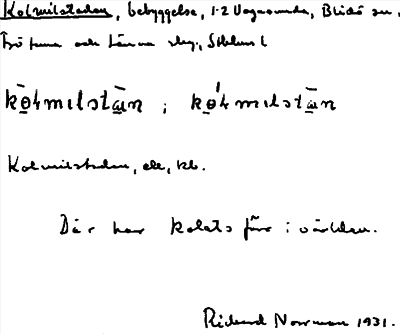 Kolmilstaden, bebyggelse, 1-2 Vagnsunda, Blidö sn,
Frötuna och Länna skg., Sthlms l
ko̲lmɩlstän ; ko̲lmɩlstän
Kolmilstaden, elr, kb.
Där har kolats förr i världen.
Rickard Norrman 1931.